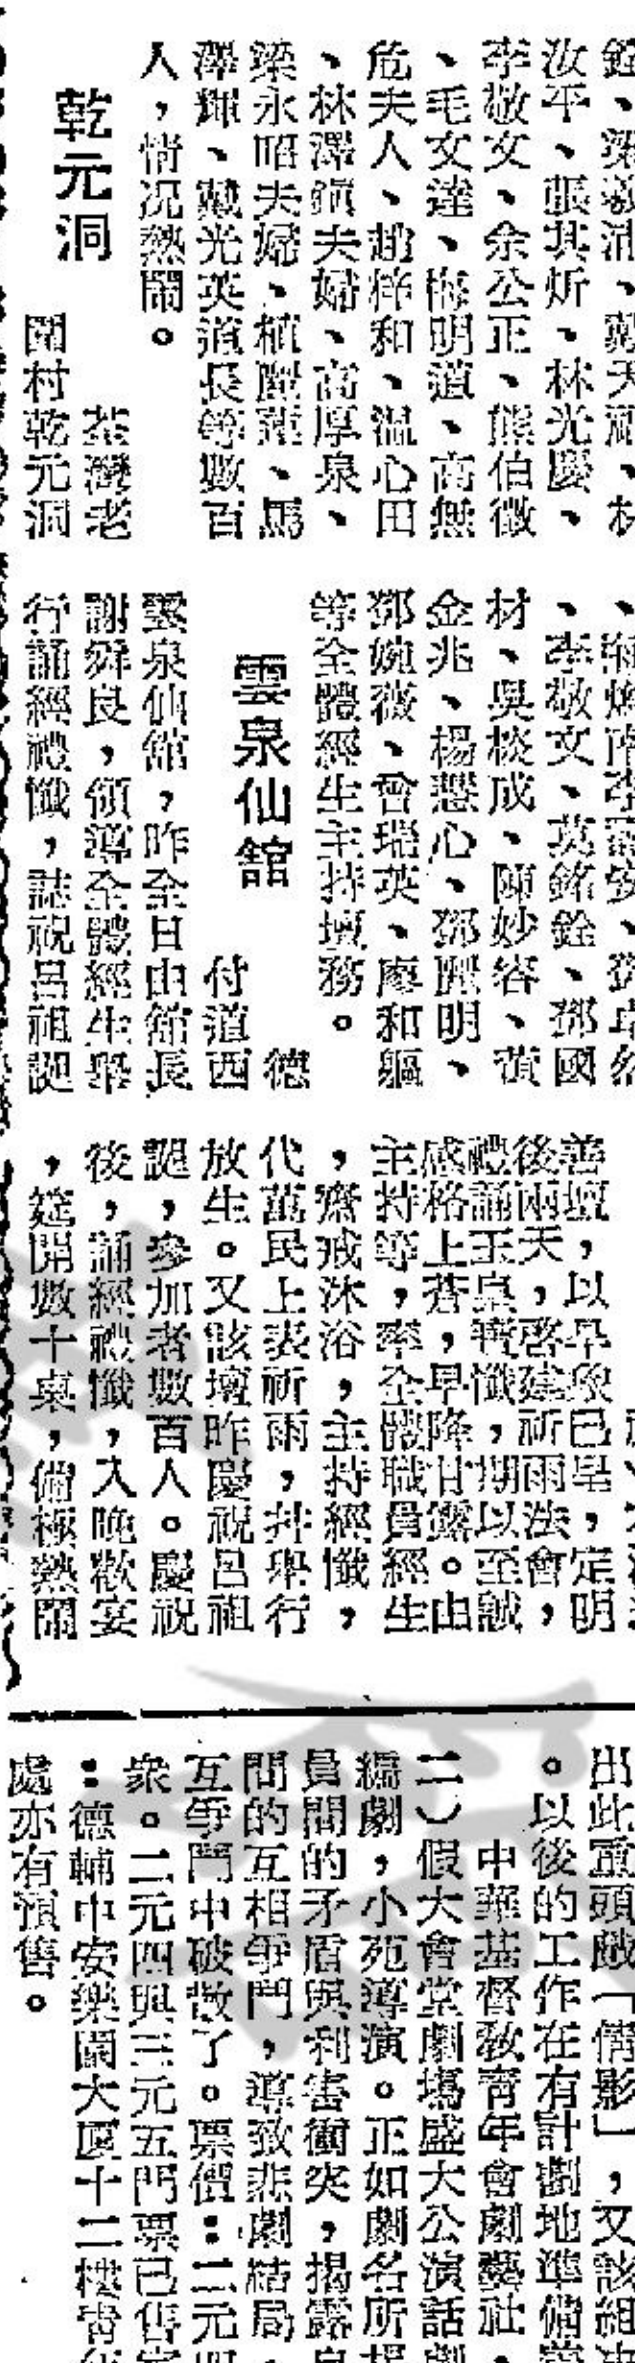 汝平、張其炘、林光慶、
李敬女、余公正、熊伯徵
、毛文達、梅明道、高無
危夫人、趙梓和、溫心田
、林澤　夫婦、高厚泉、
梁永昭夫婦、植　蓮、馬
澤輝、戴光英道長等數百
人，情況熱鬧。
乾元洞
荃灣老
圍村乾元洞
、李敬文、莫銘銓、鄧國
材、吳棪成、陳妙容、黃
金兆、楊慧心、鄧麗明、
鄧婉薇、曾瑞英、廖和軀
等全體經生主持壇務。
雲泉仙舘
德
付道西
雲泉仙舘，昨全日由舘長
謝舜良，領導全體經生舉
行誦經禮懺，誌祝呂祖誕
善壇，以旱象已呈，定明
後兩天，啓建祈雨法會，
禮誦玉皇寶懺，期以至誠
感格上蒼，早降甘露。由
主持等，率全體職員經生
，齋戒沐浴，主持經懺，
代萬民上表祈雨，并舉行
放生。又該壇昨慶祝呂祖
誕，參加者數百人。慶祝
後，誦經禮懺，入晚歡宴
，筵開數十桌，備極熱鬧
出此重頭戲「倩影」，又該組
。以後的工作在有計劃地準備
中華基督敎靑年會劇藝社，
二）假大會堂劇塲盛大公演話劇
編劇，小苑導演。正如劇名所
員間的矛盾與利害衝突，揭露
間的互相爭鬥，導致悲劇結局，
互爭鬥中破散了。票價：二元
衆。二元四與三元五門票已售
：德輔中安樂園大厦十二樓靑
處亦有預售。